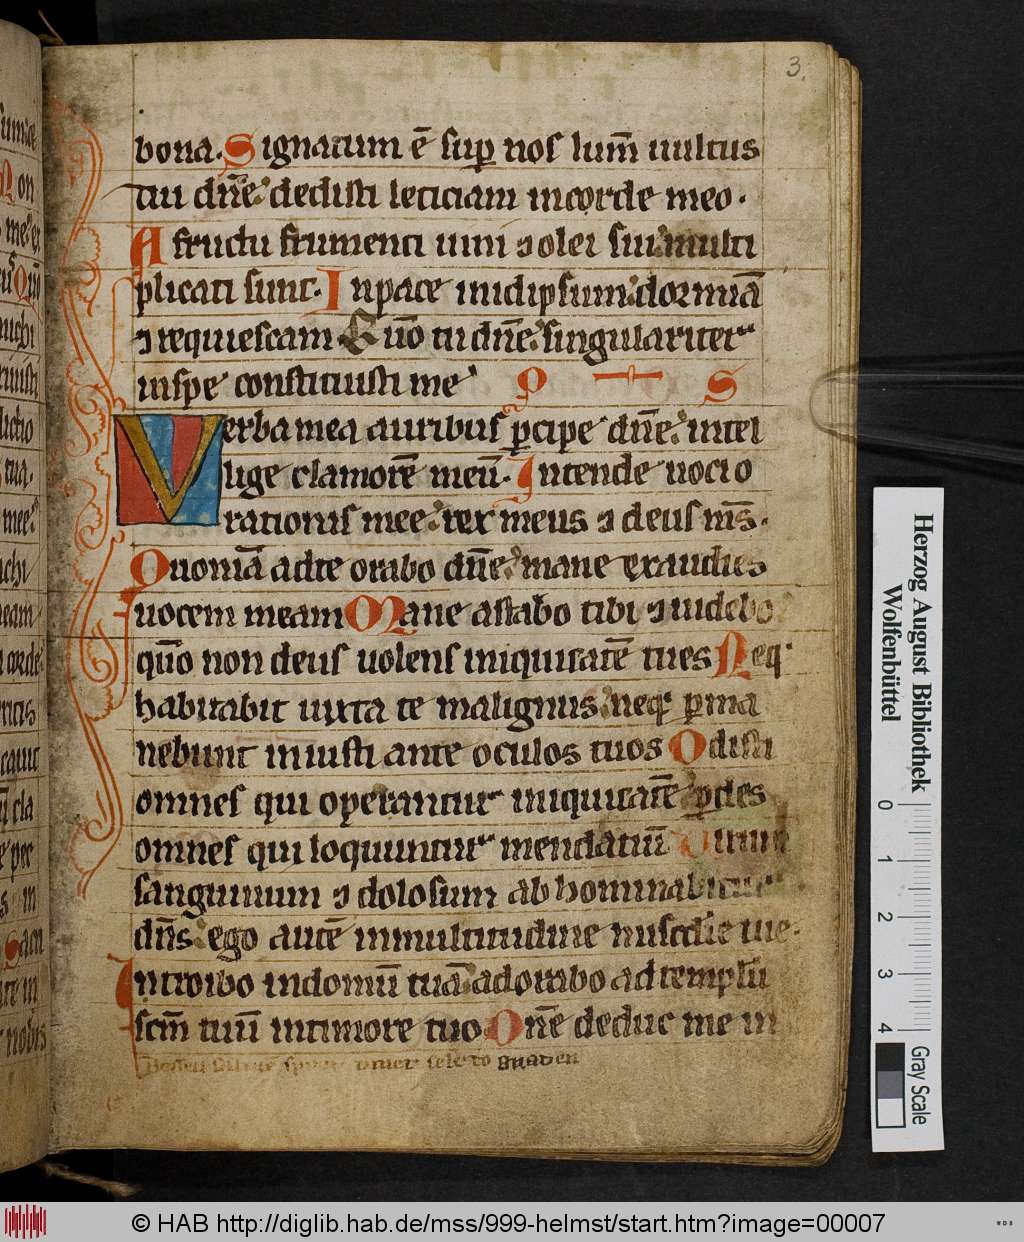 3.
bona. Signatum ē sup nos lum̄ uultus
tui dn̄e dedisti leticiam incorde meo.
A fructu frumenti uini ⁊ olei sui multi
plicati sunt. Inpace inidipsum dormiā
⁊ requiescam Quo͞ tu dn̄e singulariter
inspe constituisti me P S
Verba mea auribus ꝑcipe dn̄e intel
lige clamorē meū. Intende uoci o
rationis mee rex meus ⁊ deus ms̄.
Quoniā adte orabo dn̄e mane exaudies
uocem meam Mane astabo tibi ⁊ uidebo
qūo non deus uolens iniquitatē tu es Neq
habitabit iuxta te malignus neq ꝑma
nebunt iniusti ante oculos tuos Odisti
omnes qui operantur iniquitatē ꝑdes
omnes qui loquuntur mendatiū Uirum
sanguinum ⁊ dolosum abhominabitur
dn̄s ego autē inmultitudine misc̄die tue.
Introibo indomū tuā adorabo ad templū
scm̄ tuū intimore tuo Dn̄e deduc me in
gnaden
Herzog August Bibliothek
Wolfenbüttel
0 1 2 3 4
Gray Scale
© HAB http://diglib.hab.de/mss/999-helmst/start.htm?image=00007